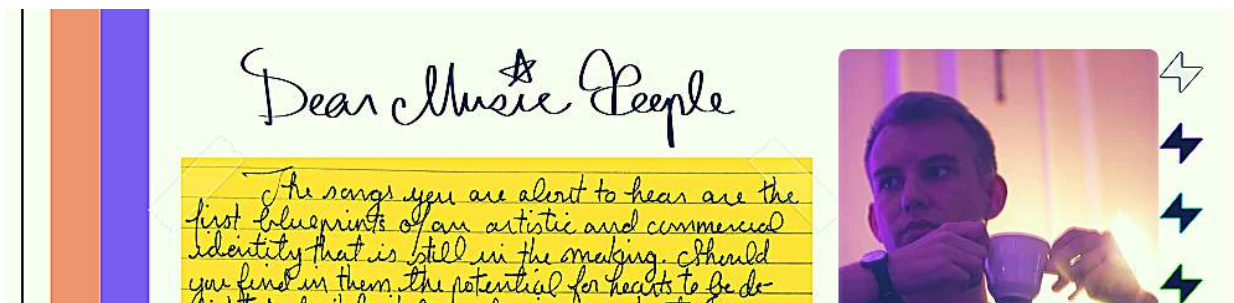 Dear Music People
The songs you are about to hear are the
first blueprints of an artistic and commercial
identity that is still in the making. Should
you find in them the potential for hearts to be de-